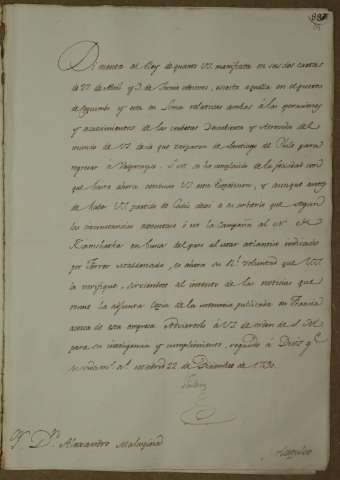 Di cuenta al Rey de quanto VS. manifiesta en sus dos cartas
de 27 de Abril y 3 de Junio ultimos, escrita aquella en el puerto
de Coquimbo y esta en Lima relativas ambas á las operaciones
y acaecimientos de las corbetas Descubierta y Atrevida del
mando de VS. desde que zarparon de Santiago de Chile para
regresar á Valparayso. S. M. se ha complacido de la felicidad con
que hasta ahora continua VS. esta Expedicion, y aunque antes
de salir VS. partido de Cadiz dexo a su arbitrio que segun
las circunstancias ó no la campaña al N. de
Kamchatka en busca del paso al mar atlantico indicado
por Ferrer Maldonado, es ahora su Rl. voluntad que VS.
la verifique, sirviendole al intento de las noticias que
reune la adjunta copia de la memoria publicada en Francia
acerca de esta empresa. Adviertolo á VS. de orden de S. M.
para su inteligencia y cumplimiento, rogando á Dios gue
su vida ms. as. Madrid 22 de Diciembre de 1790.
Valdes
Sr. Dn. Alexandro Malaspina
Acapulco